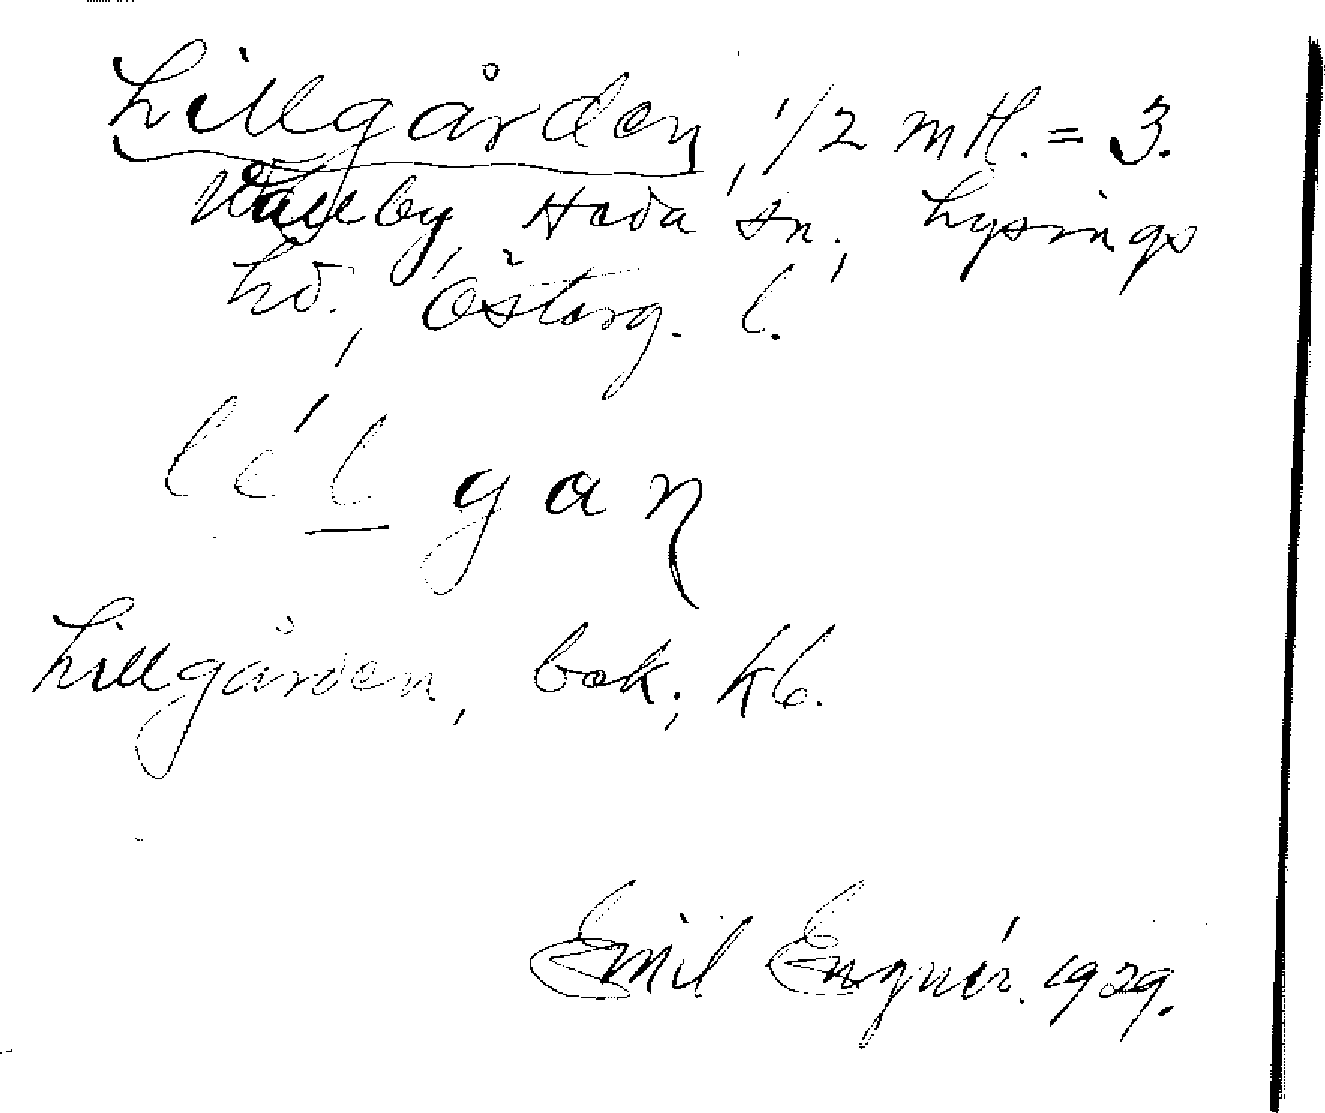 Lillgården, 1/2 mtl. = 3.
Väl​lby, Heda sn., Lysings
hd., Österg. l.
lél gan
Lillgården, bok; kb.
Emil Engnér. 1929.